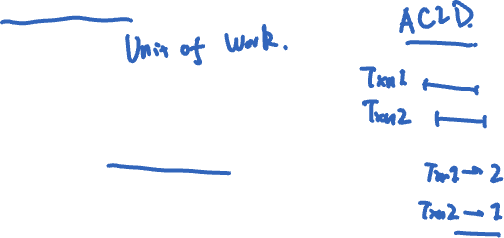 Unit of Work.
ACID.
Txn1
Txn2
Txn1 → 2
Txn2 → 1